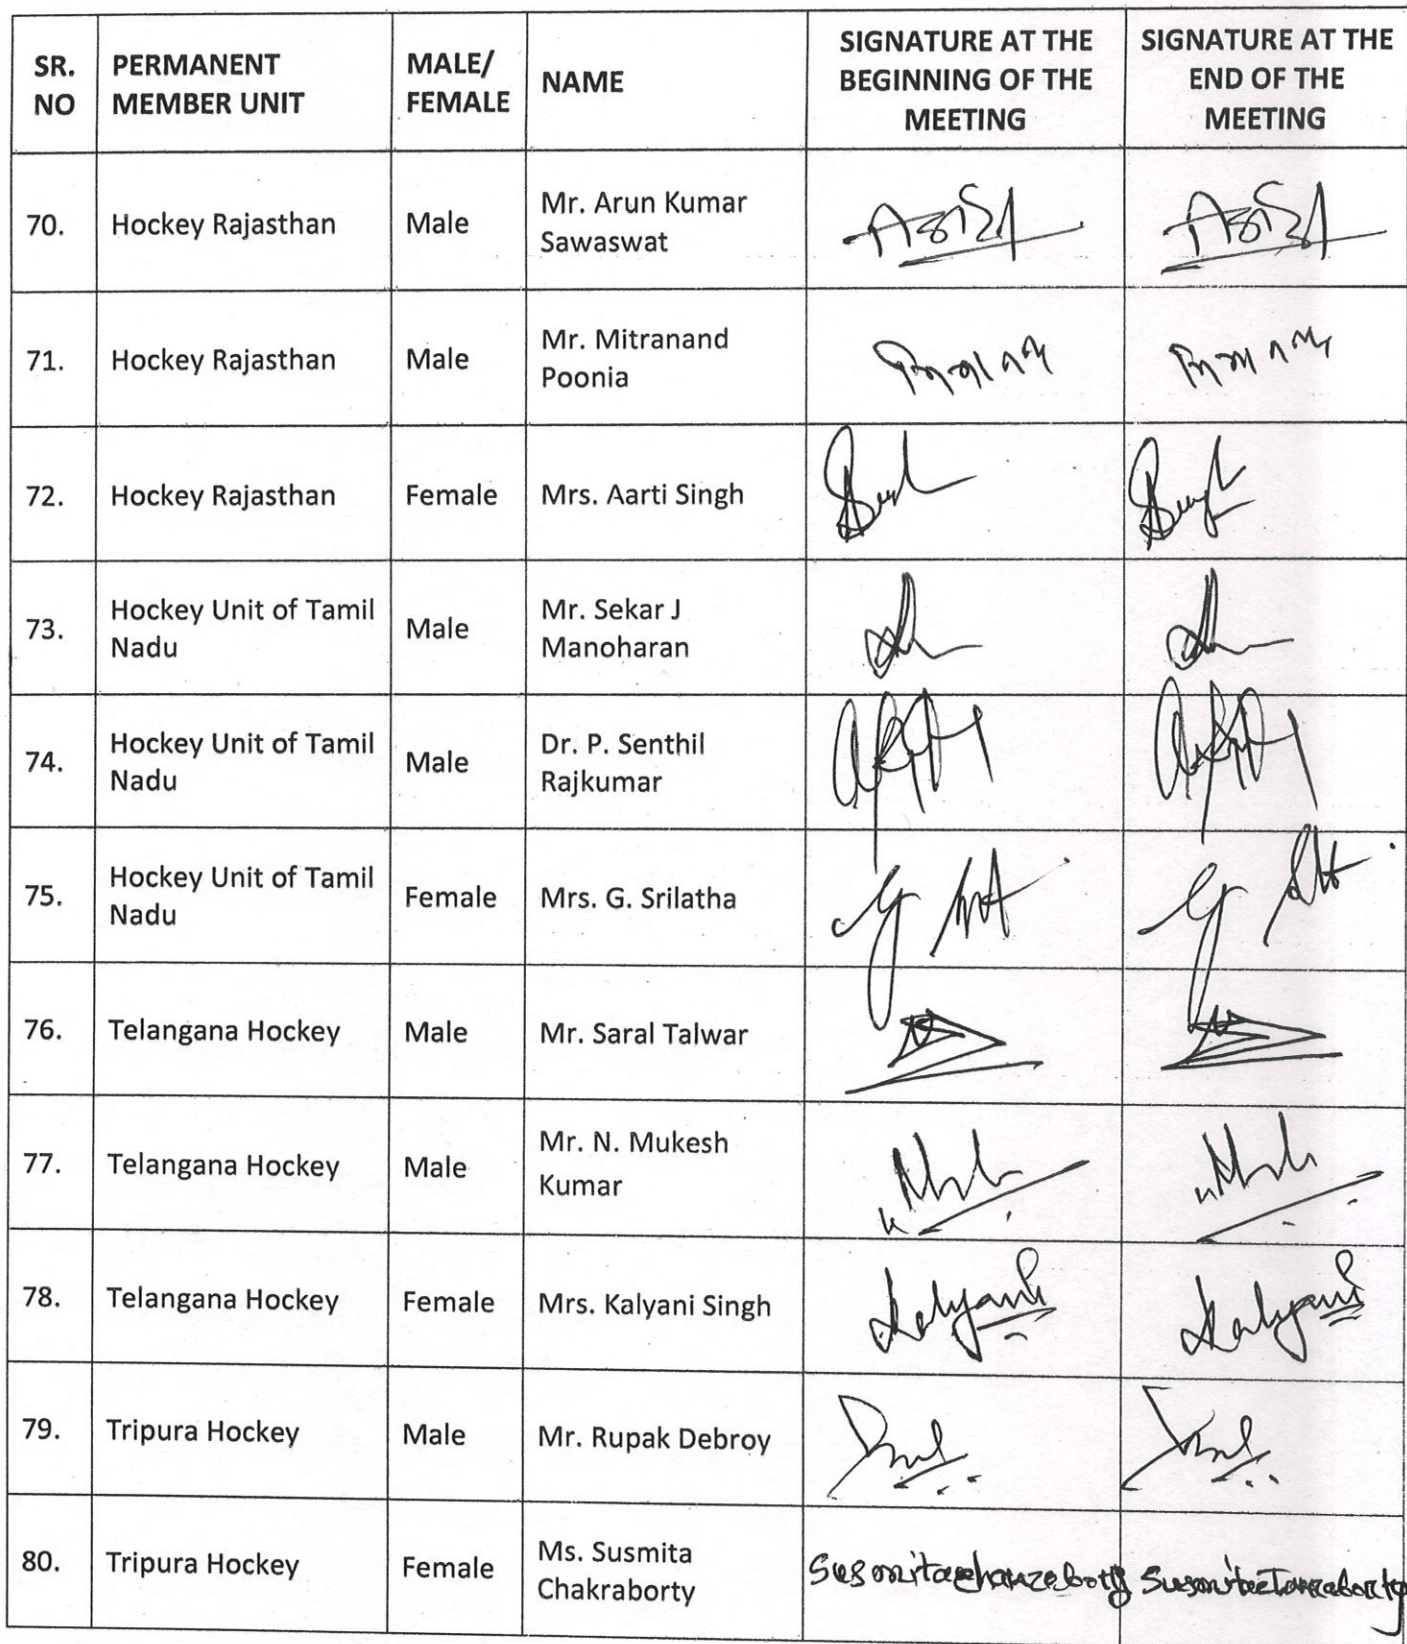 SR. NO
PERMANENT MEMBER UNIT
MALE/ FEMALE
NAME
SIGNATURE AT THE BEGINNING OF THE MEETING
SIGNATURE AT THE END OF THE MEETING
70.
Hockey Rajasthan
Male
Mr. Arun Kumar
Sawaswat
71.
Hockey Rajasthan
Male
Mr. Mitranand
Poonia
72.
Hockey Rajasthan
Female
Mrs. Aarti Singh
73.
Hockey Unit of Tamil
Nadu
Male
Mr. Sekar J
Manoharan
74.
Hockey Unit of Tamil
Nadu
Male
Dr. P. Senthil
Rajkumar
75.
Hockey Unit of Tamil
Nadu
Female
Mrs. G. Srilatha
76.
Telangana Hockey
Male
Mr. Saral Talwar
77.
Telangana Hockey
Male
Mr. N. Mukesh
Kumar
78.
Telangana Hockey
Female
Mrs. Kalyani Singh
Kalyani
Kalyani
79.
Tripura Hockey
Male
Mr. Rupak Debroy
80.
Tripura Hockey
Female
Ms. Susmita
Chakraborty